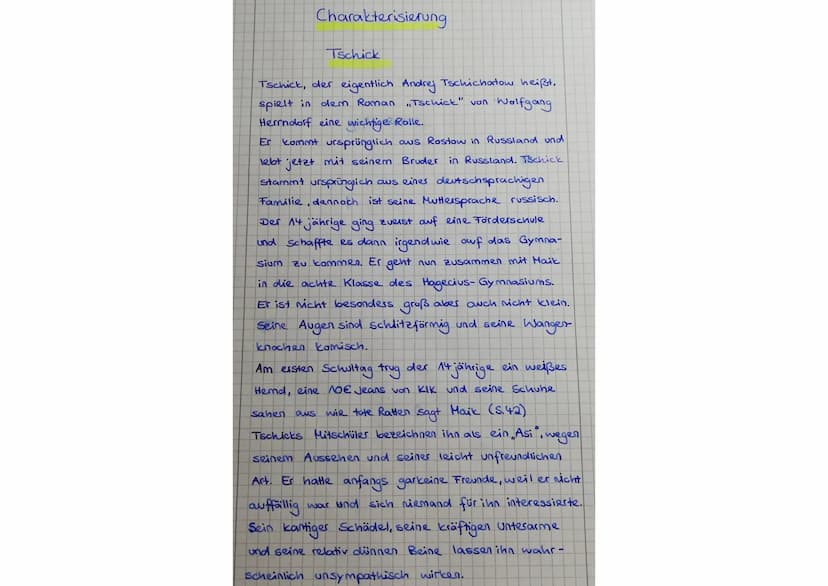 Charakterisierung
Tschick
Tschick, der eigentlich Andrej Tschichatow heißt,
spielt in dem Roman „Tschick" von Wolfgang
Herrndorf eine wichtige Rolle.
Er kommt ursprünglich aus Rostow in Russland und
lebt jetzt mit seinem Bruder in Russland. Tschick
stammt ursprünglich aus einer deutschsprachigen
Familie, dennoch ist seine Muttersprache russisch.
Der 14 jährige ging zuerst auf eine Förderschule
und schaffte es dann irgendwie auf das Gymna-
sium zu kommen. Er geht nun zusammen mit Maik
in die achte Klasse des Hagecius-Gymnasiums.
Er ist nicht besonders groß aber auch nicht klein.
Seine Augen sind schlitzförmig und seine Wangen-
knochen komisch.
Am ersten Schultag trug der 14 jährige ein weißes
Hemd, eine 10€ Jeans von KIK und seine Schuhe
sahen aus wie tote Ratten sagt Maik (S.42)
Tschicks Mitschüler bezeichnen ihn als ein „Asi", wegen
seinem Aussehen und seiner leicht unfreundlichen
Art. Er hatte anfangs garkeine Freunde, weil er nicht
auffällig war und sich niemand für ihn interessierte.
Sein kantiger Schädel, seine kräftigen Unterarme
und seine relativ dünnen Beine lassen ihn wahr-
scheinlich unsympathisch wirken.